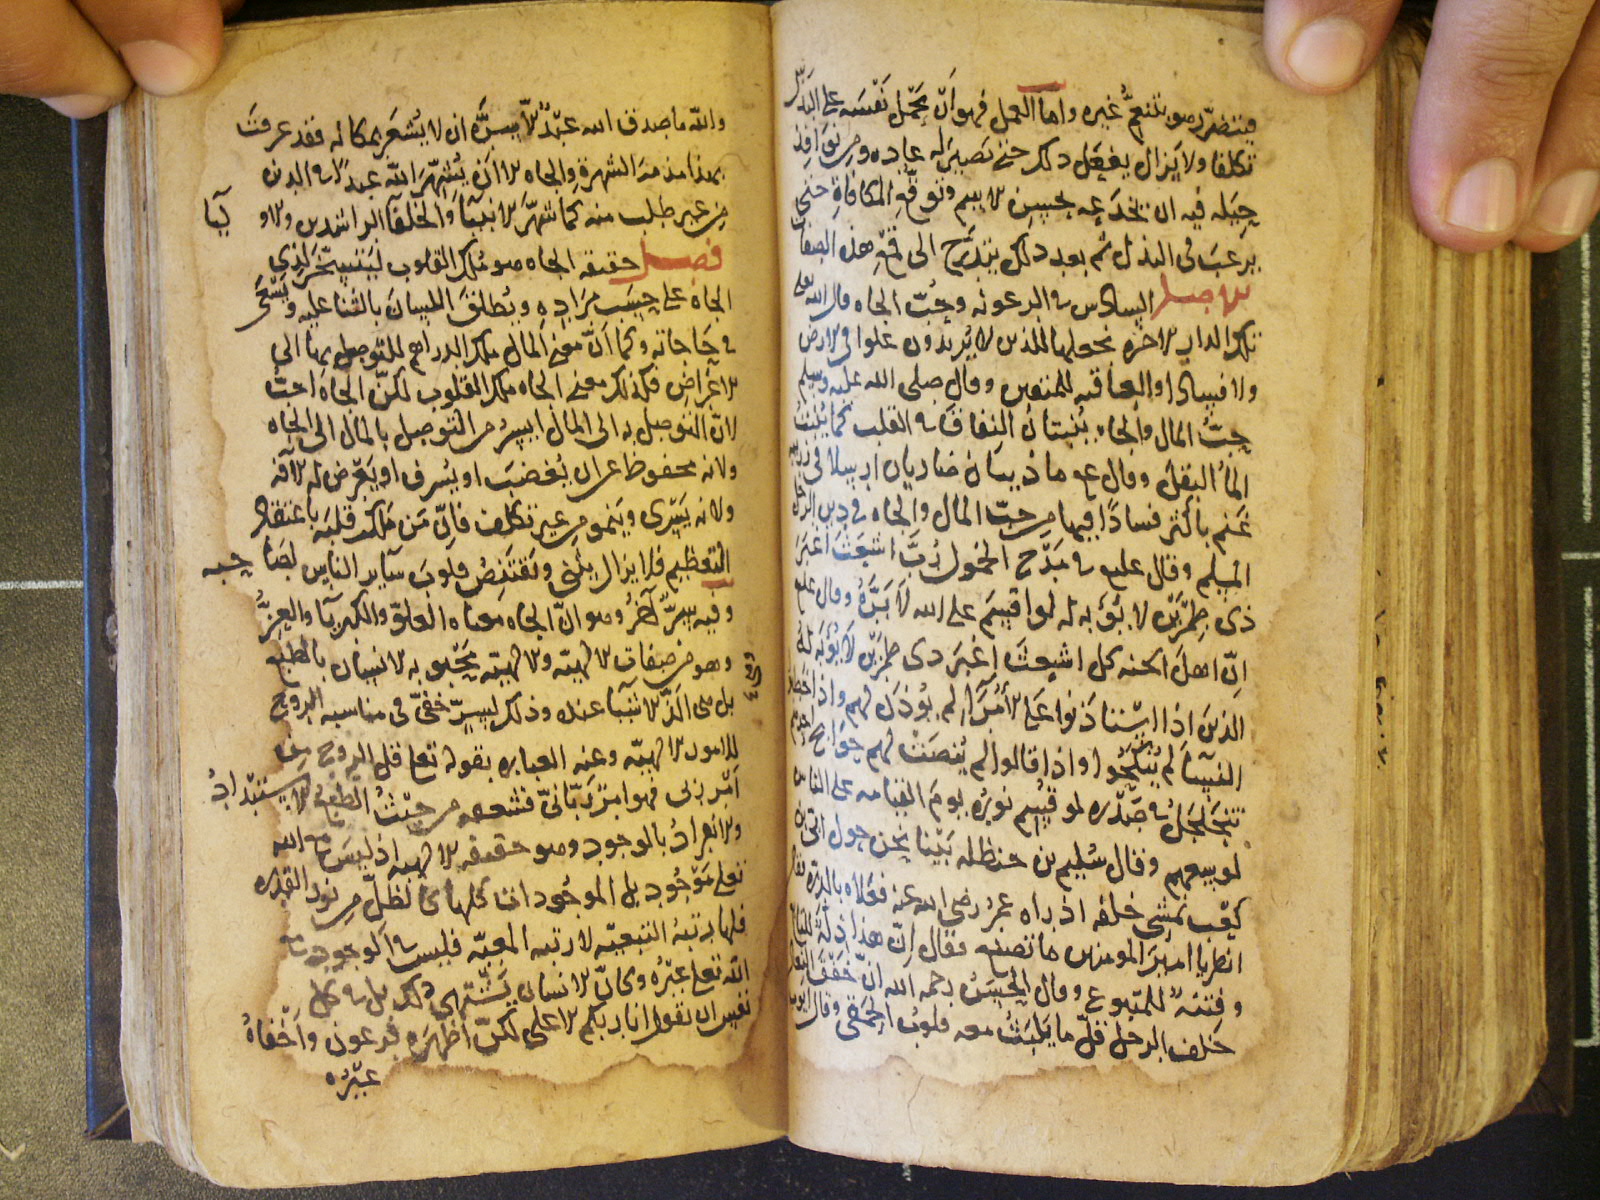 فيتضرر هو ويتنعم غيره واما العمل فهو ان يحمل نفسه على البذل
تكلفا ولا يزال يفعل ذلك حتى تصير له عاده ومن نوافذ
حيله فيه ان يخدع نفسه بحسن الاسم وتوقع المكافاة حتى
يرغب في البذل ثم بعد ذلك يتدرج الى قمع هذه الصفات
الاصل السادس في الرعونه وحب الجاه قال الله تعلى
تلك الدار الاخره نجعلها للذين لا يريدون علوا في الارض
ولا فسادا والعاقبه للمتقين وقال صلى الله عليه وسلم
حب المال والجاه ينبتان النفاق في القلب كما ينبت
الماء البقل وقال عم ما ذيبان ضاريان ارسلا في زريبة
غنم باكثر فسادا فيها من حب المال والجاه في دين الرجل
المسلم وقال عليه في مدح الخمول رب اشعث اغبر
ذي طمرين لا يؤبه له لو اقسم على الله لابره وقال عليه
ان اهل الجنه كل اشعث اغبر ذي طمرين لا يؤبه له
الذين اذا استاذنوا على الامراء لم يوذن لهم واذا خطبوا
النساء لم ينكحوا واذا قالوا لم ينصت لهم حوائج احدهم
تتجلجل في صدره لو قسم نوره يوم القيامه على الناس
لوسعهم وقال سليم بن حنظله بينا نحن حول ابي بن
كعب نمشي خلفه اذ راه عمر رضي الله عنه فعلاه بالدره فقال
انظر يا امير المومنين ما تصنع فقال ان هذا ذلة للتابع
وفتنة للمتبوع وقال الحسن رحمه الله ان خفق النعال
خلف الرجل قل ما يلبث معه قلوب الحمقى وقال ايوب
والله ما صدق الله عبد الا سره ان لا يشعر بمكانه فقد عرفت
بهذا مذمة الشهرة والجاه الا ان يشهر الله عبدا في الدين
من غير طلب منه كما شهر الانبياء والخلفا الراشدين والاوليا
فصل حقيقه الجاه هو ملك القلوب ليتسخر لذي
الجاه على حسب مراده ويطلق اللسان بالثنا عليه ويسعى
في حاجاته وكما ان معنى المال ملك الدراهم للتوصل بها الى
الاغراض فكذلك معنى الجاه ملك القلوب لكن الجاه احب
لان التوصل به الى المال ايسر من التوصل بالمال الى الجاه
ولانه محفوظ عن ان يغصب او يسرق او يعرض له الافه
ولانه يسري وينمو من غير تكلف فان من ملك قلبه باعتقاد
التعظيم فلا يزال يثني ويقتنص قلوب ساير الناس لصاحبه
وفيه سر آخر وهو ان الجاه معناه العلو والكبرياء والعز
وهو من صفات الالهية والالهية محبوبه للانسان بالطبع
بل هي الذ الاشياء عنده وذلك لسر خفي في مناسبه الروح
للامور الالهيه وعنه العباره بقوله تعلى قل الروح من
امر ربي فهو امر رباني فشغفه من حيث الطبع الاستبداد
والانفراد بالوجود وهو حقيقه الالهيه اذ ليس مع الله
تعلى موجود بل الموجودات كلها كالظل من نور القدره
فلها رتبة التبعيه لا رتبه المعيه فليس في الوجود مع
الله تعلى غيره وكان الانسان يشتهي ذلك بل في كل
نفس ان يقول انا ربكم الاعلى لكن اظهره فرعون واخفاه
غيره